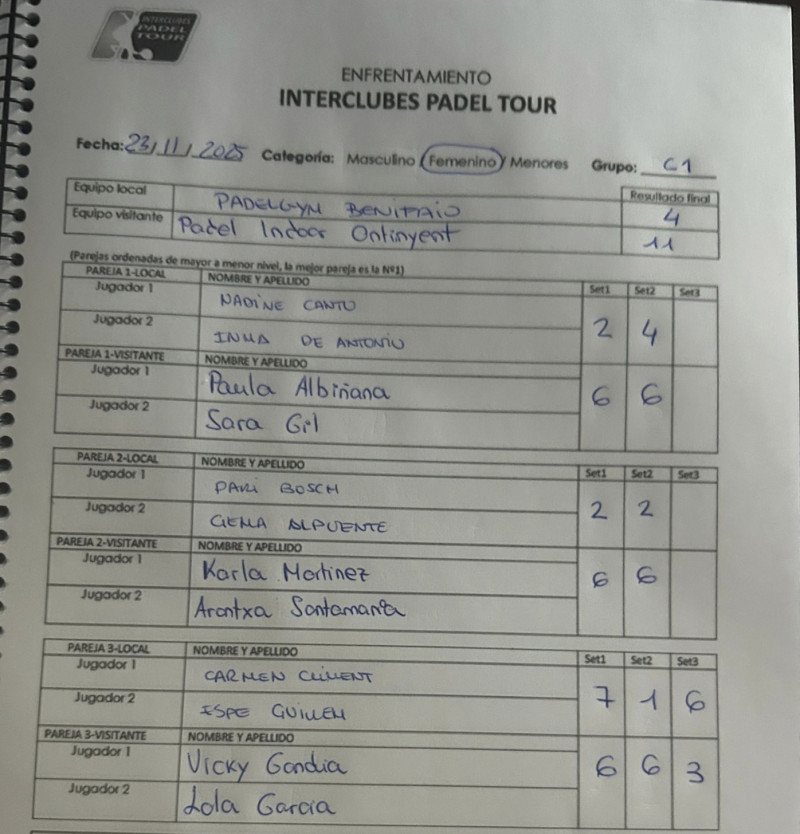 INTERCLUBES
PADEL
TOUR
ENFRENTAMIENTO
INTERCLUBES PADEL TOUR
Fecha: 23/11/2025 Categoría: Masculino Femenino Menores Grupo: C1
Equipo local PADELGYM BENIFAIO Resultado final 4
Equipo visitante Padel Indoor Ontinyent 11
(Parejas ordenadas de mayor a menor nivel, la mejor pareja es la Nº1)
PAREJA 1-LOCAL NOMBRE Y APELLIDO Set1 Set2 Set3
Jugador 1 NADINE CANTO
Jugador 2 INMA DE ANTONIO 2 4
PAREJA 1-VISITANTE NOMBRE Y APELLIDO
Jugador 1 Paula Albiñana 6 6
Jugador 2 Sara Gil
PAREJA 2-LOCAL NOMBRE Y APELLIDO Set1 Set2 Set3
Jugador 1 PARI BOSCH
Jugador 2 GEMA ALPUENTE 2 2
PAREJA 2-VISITANTE NOMBRE Y APELLIDO
Jugador 1 Karla Martinez 6 6
Jugador 2 Arantxa Santamaría
PAREJA 3-LOCAL NOMBRE Y APELLIDO Set1 Set2 Set3
Jugador 1 CARMEN CLIMENT
Jugador 2 ESPE GUILLEM 7 1 6
PAREJA 3-VISITANTE NOMBRE Y APELLIDO
Jugador 1 Vicky Gandia 6 6 3
Jugador 2 Lola Garcia